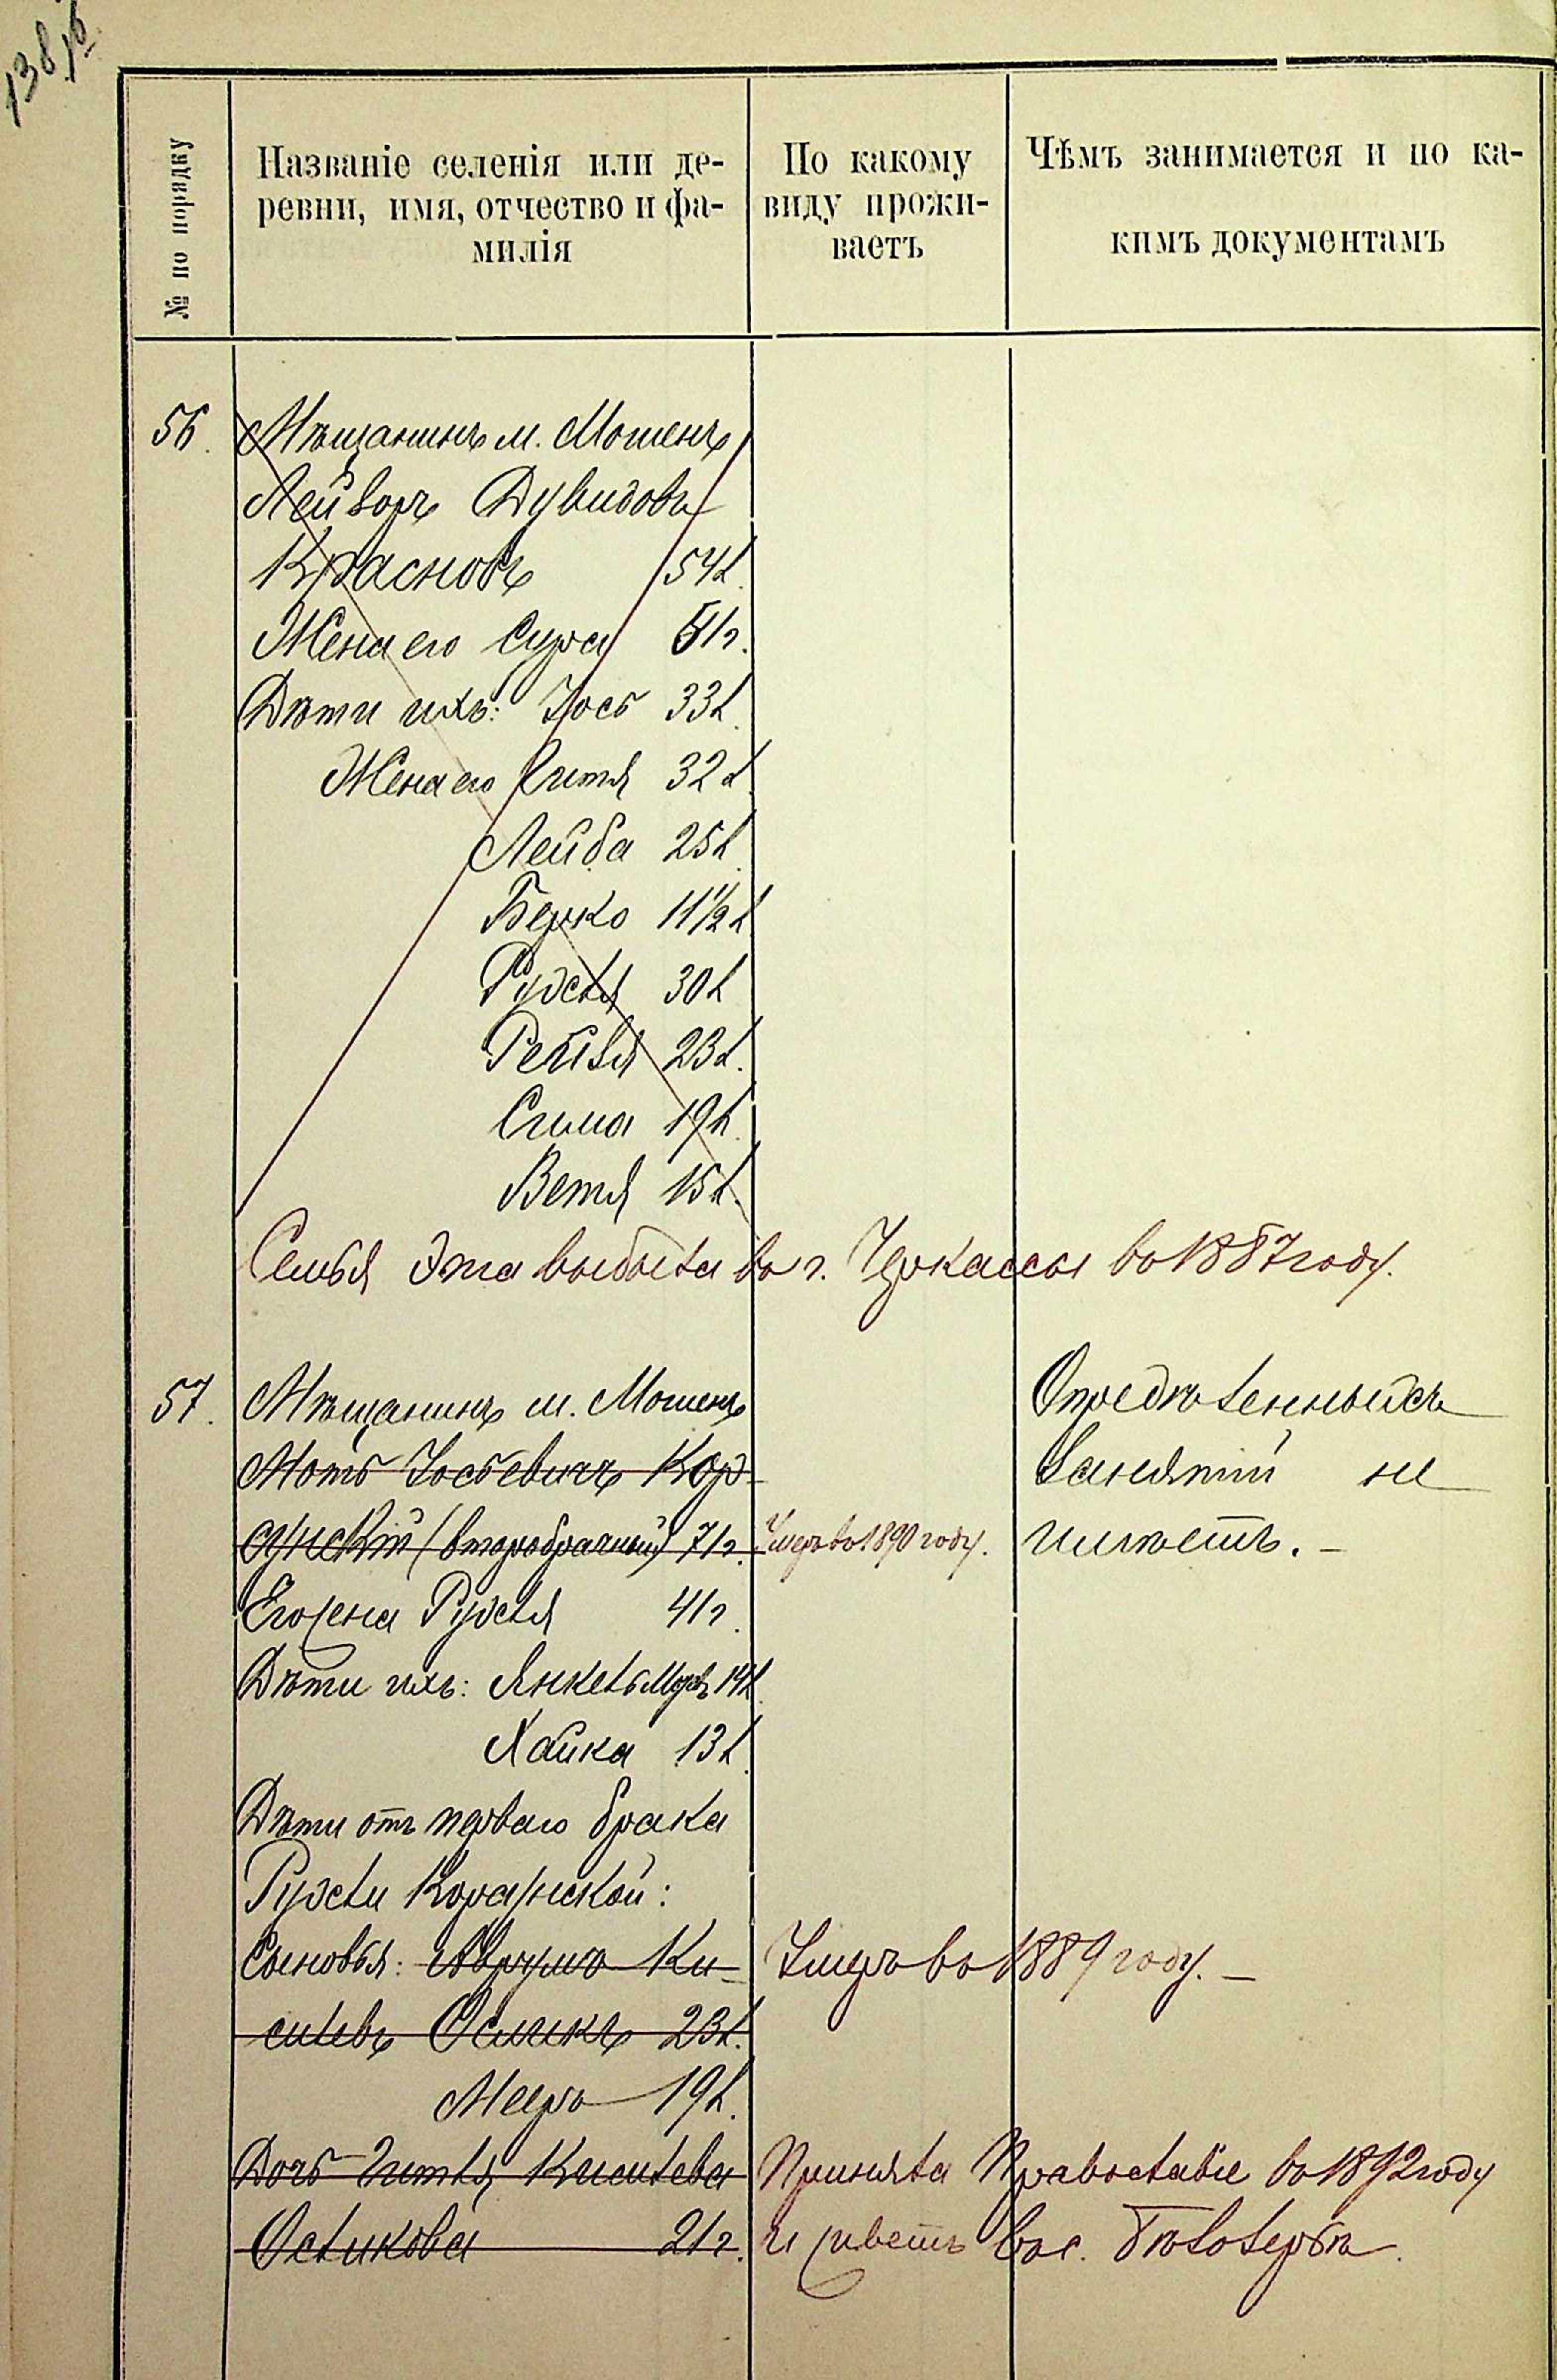 138 1б
№ по порядку
Названіе селенія или де-
ревни, имя, отчество и фа-
милія
По какому
виду прожи-
ваетъ
Чѣмъ занимается и по ка-
кимъ документамъ
56. Мѣщанинъ м. Мошенъ
Лейзоръ Дувидовъ
Красновъ 54 л.
Жена его Сура 51 г.
Дѣти ихъ: Іось 33 л.
Жена его Гитля 32 л.
Лейба 25 л.
Берко 11 1/2 л.
Рухля 30 л.
Рейзя 23 л.
Сима 19 л.
Ветя 15 л.
Семья эта выбыла въ г. Черкассы въ 1887 году.
57. Мѣщанинъ м. Мошенъ
Моть Іосьевичъ Кор-
сунскій (второбрачный) 71 г.
Умеръ въ 1890 году.
Опредѣленныхъ
занятій не
имѣетъ. –
Его жена Рухля 41 г.
Дѣти ихъ: Янкель 14 л.
Хайка 13 л.
Дѣти отъ перваго брака
Рухли Корсунской:
Сыновья: Аврумъ Ки-
Умеръ въ 1889 году. –
силевъ 23 л.
Мееръ 19 л.
Дочь Гитля Кисилева
Приняла Православіе въ 1892 году
21 г.
и живетъ въ с. Бѣлозерьѣ.